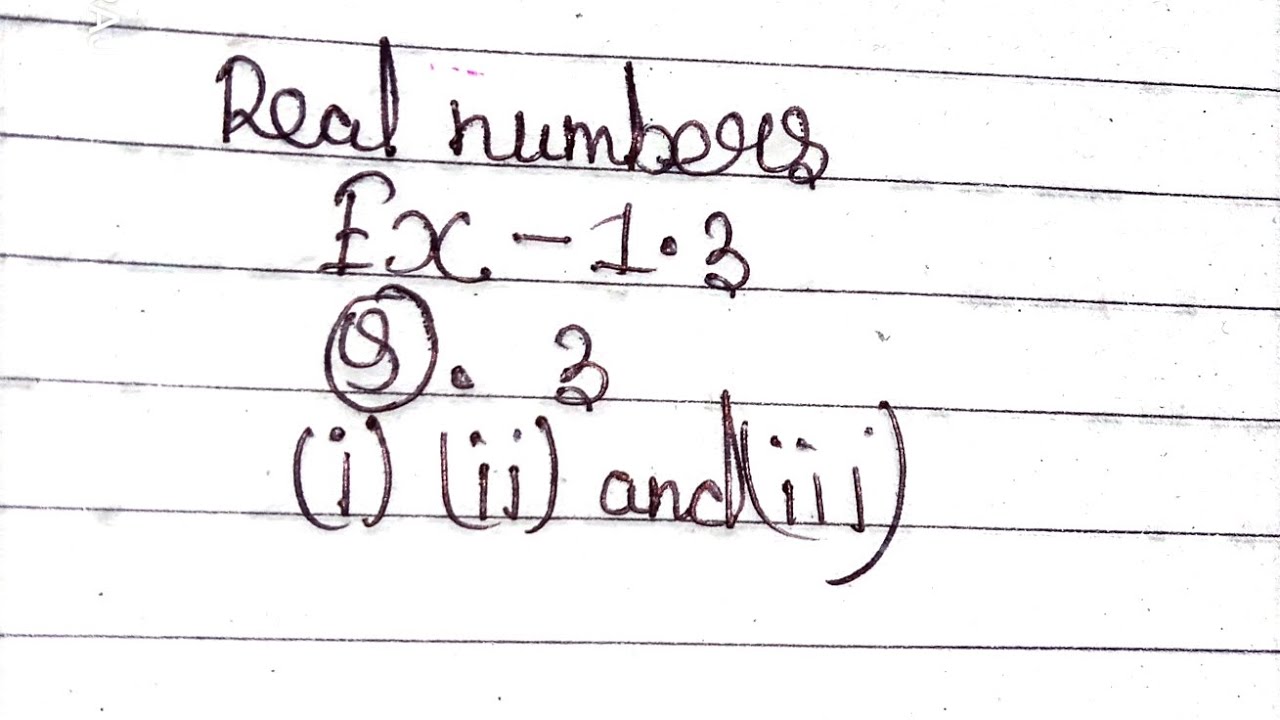 Real numbers
Ex - 1.3
Q. 3
(i) (ii) and (iii)